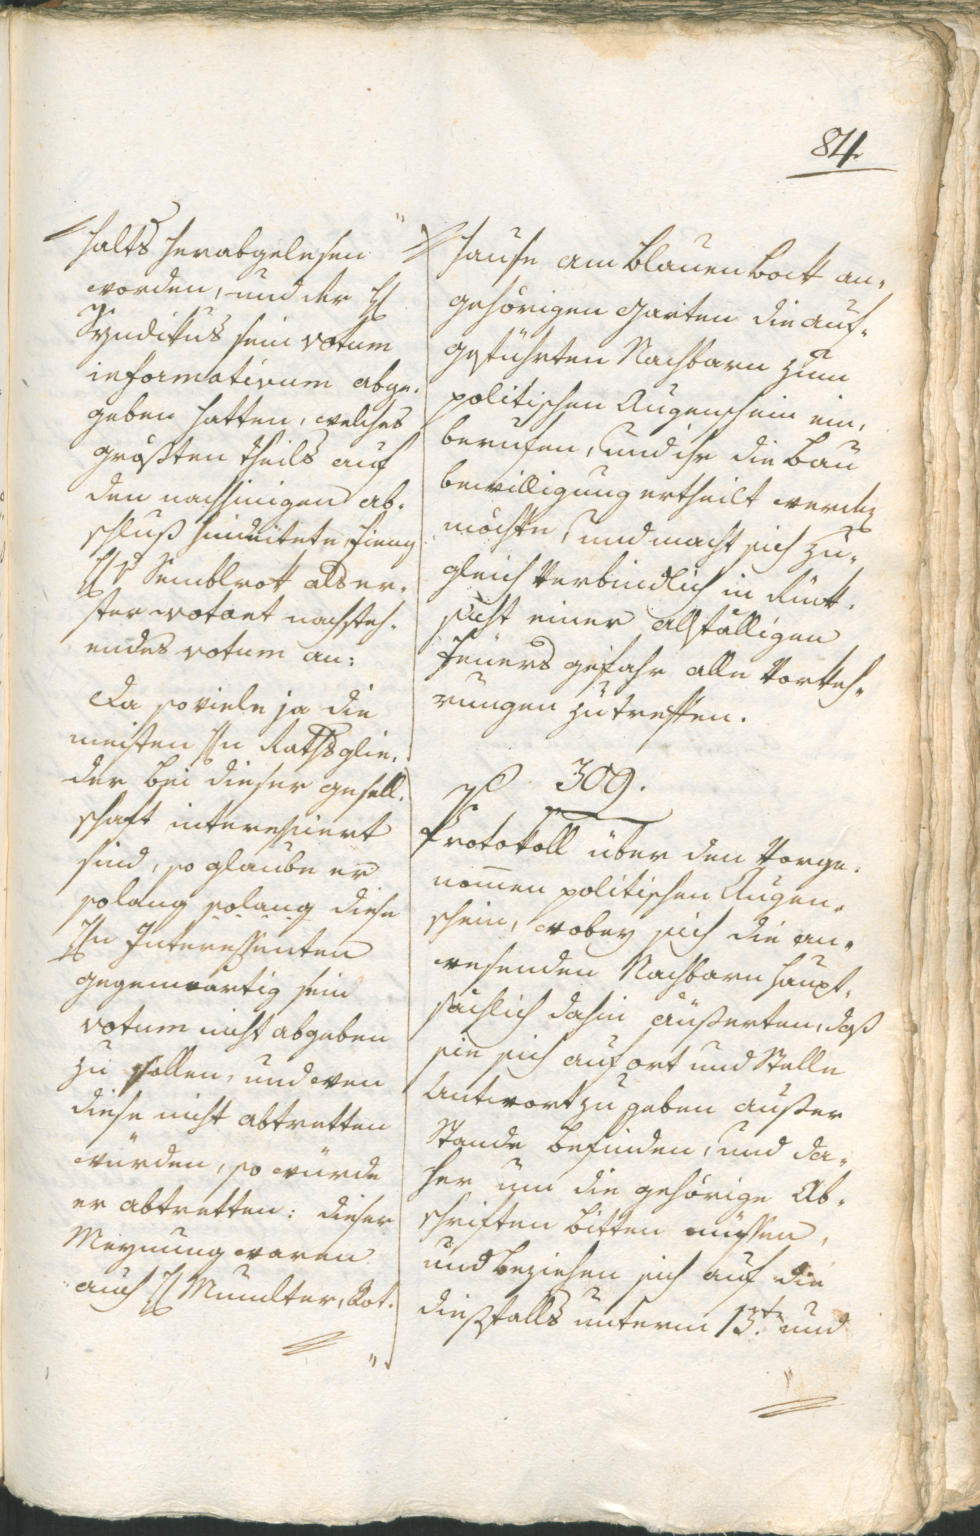 84.
halts herabgelesen
worden, und der H
Syndikus sein votum
informativum abge-
geben hatten, welches
größten theils auf
den nachhinigen ab-
schluß hindeitete, fieng
H v Semblrok als er-
ster votant nachsteh-
endes votum an:
Da so viele ja die
meisten Hn Rathsglie-
der bei dieser gesell-
schaft interessiert
sind, so glaube er
solang solang diese
Hn Interessenten
gegenwärtig sein
votum nicht abgeben
zu sollen, und wen
diese nicht abtretten
würden, so würde
er abtretten: dieser
Meynung waren
auch H Mumelter, Rot-
hause am blauen Bock an-
gehörigen garten die auf-
geführten Nachbarn zum
politischen Augenschein ein-
berufen, und ihr die bau
bewilligung ertheilt werden
möchte, und macht sich zu-
gleich verbindlich in Rück-
sicht einer allfälligen
feuers gefahr alle Vorkeh-
rungen zu treffen.
309.
Protokoll über den vorge-
nomen politischen Augen-
schein, wobey sich die an-
wesenden Nachbarn haupt-
sächlich dahin äußerten, daß
sie sich auf ort und Stelle
Antwort zu geben außer
Stande befinden, und da-
her um die gehörige Ab-
schriften bitten müssen,
und beziehen sich auf die
dießfalls unterm 13.t und